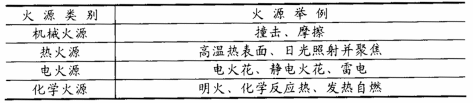 火源类别 火源举例
机械火源 撞击、摩擦
热火源 高温热表面、日光照射并聚焦
电火源 电火花、静电火花、雷电
化学火源 明火、化学反应热、发热自燃